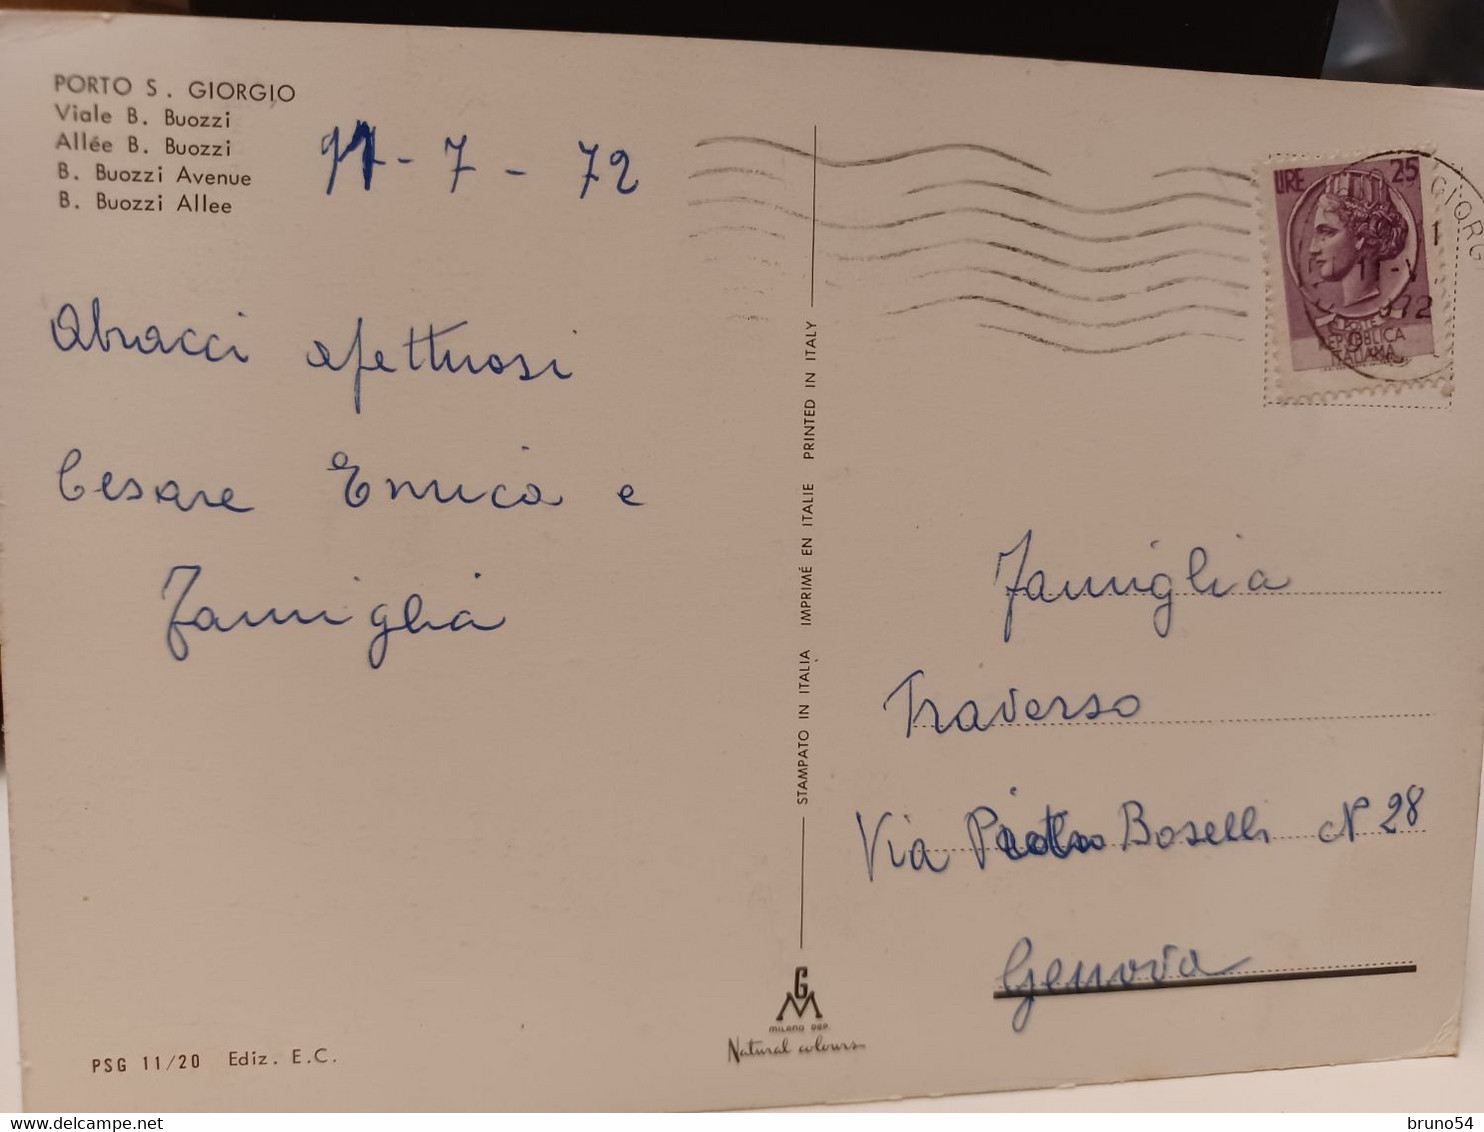 PORTO S. GIORGIO
Viale B. Buozzi
Allée B. Buozzi
B. Buozzi Avenue
B. Buozzi Allee
11-7-72
Abracci afettuosi
Cesare Enrica e
Famiglia
PSG 11/20 Ediz. E.C.
STAMPATO IN ITALIA IMPRIMÉ EN ITALIE PRINTED IN ITALY
GM
MILANO DEP.
Natural colours
LIRE 25
POSTE
REPUBBLICA
ITALIANA
GIORG
Famiglia
Traverso
Via Boselli N 28
Genova
bruno54